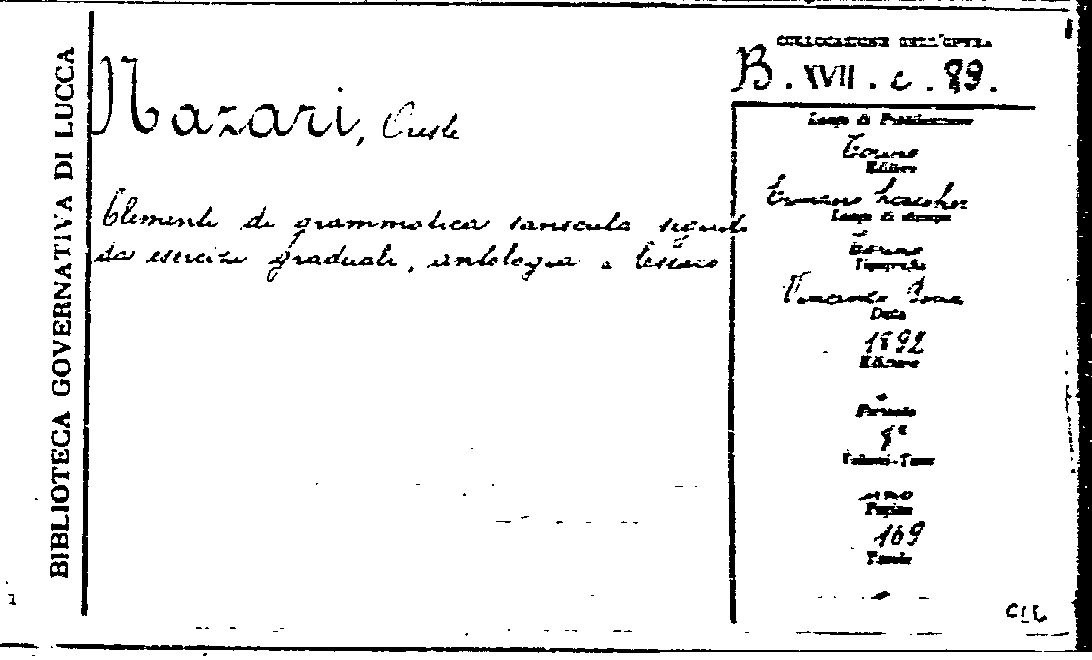 BIBLIOTECA GOVERNATIVA DI LUCCA
Nazari, Oreste
Elementi di grammatica sanscrita seguiti
da esercizi graduali, antologia e lessico
COLLOCAZIONE DELL'OPERA
B. XVII. c. 89.
Luogo di Pubblicazione
Torino
Editore
Ermanno Loescher
Luogo di stampa
Torino
Tipografia
Vincenzo Bona
Data
1892
Edizione
Formato
8°
Volumi-Tomi
uno
Pagine
169
Tavole